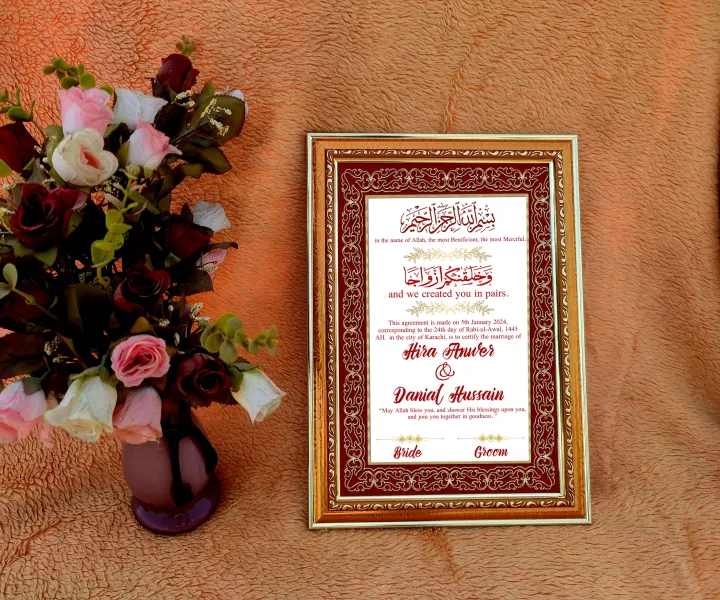 بسم الله الرحمن الرحيم
in the name of Allah, the most Benificiant, the most Merciful.
وخلقنكم ازواجا
and we created you in pairs.
This agreement is made on 5th January 2024,
corresponding to the 24th day of Rabi-ul-Awal, 1445
AH. in the city of Karachi, is to certify the marriage of
Hira Anwer
&
Danial Hussain
“May Allah bless you, and shower His blessings upon you,
and join you together in goodness.”
Bride Groom